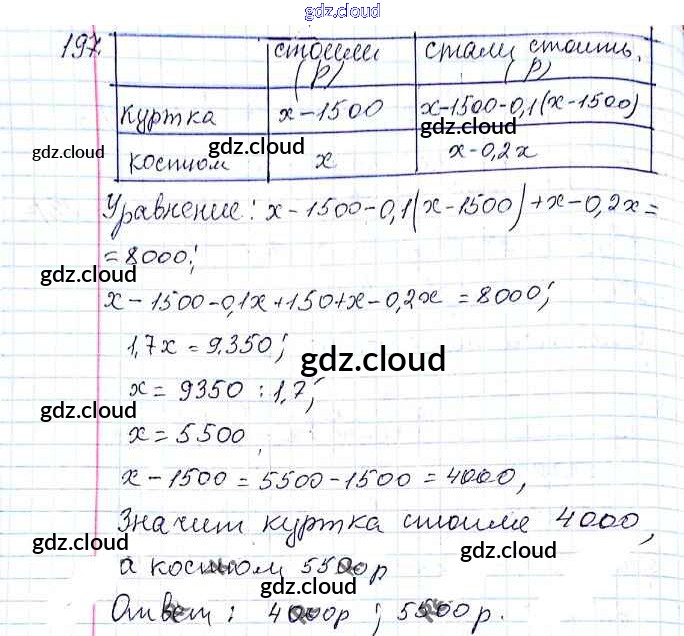 gdz.cloud
197.
стоили (р) стали стоить. (р)
куртка x-1500 x-1500-0,1(x-1500)
костюм x x-0,2x
gdz.cloud
gdz.cloud
gdz.cloud
Уравнение: x-1500-0,1(x-1500)+x-0,2x=
=8000;
gdz.cloud
x-1500-0,1x+150+x-0,2x=8000;
1,7x=9350;
gdz.cloud
x=9350:1,7;
gdz.cloud
x=5500
x-1500=5500-1500=4000,
Значит куртка стоила 4000,
gdz.cloud
gdz.cloud
а костюм 5500р
gdz.cloud
Ответ: 4000р; 5500р.